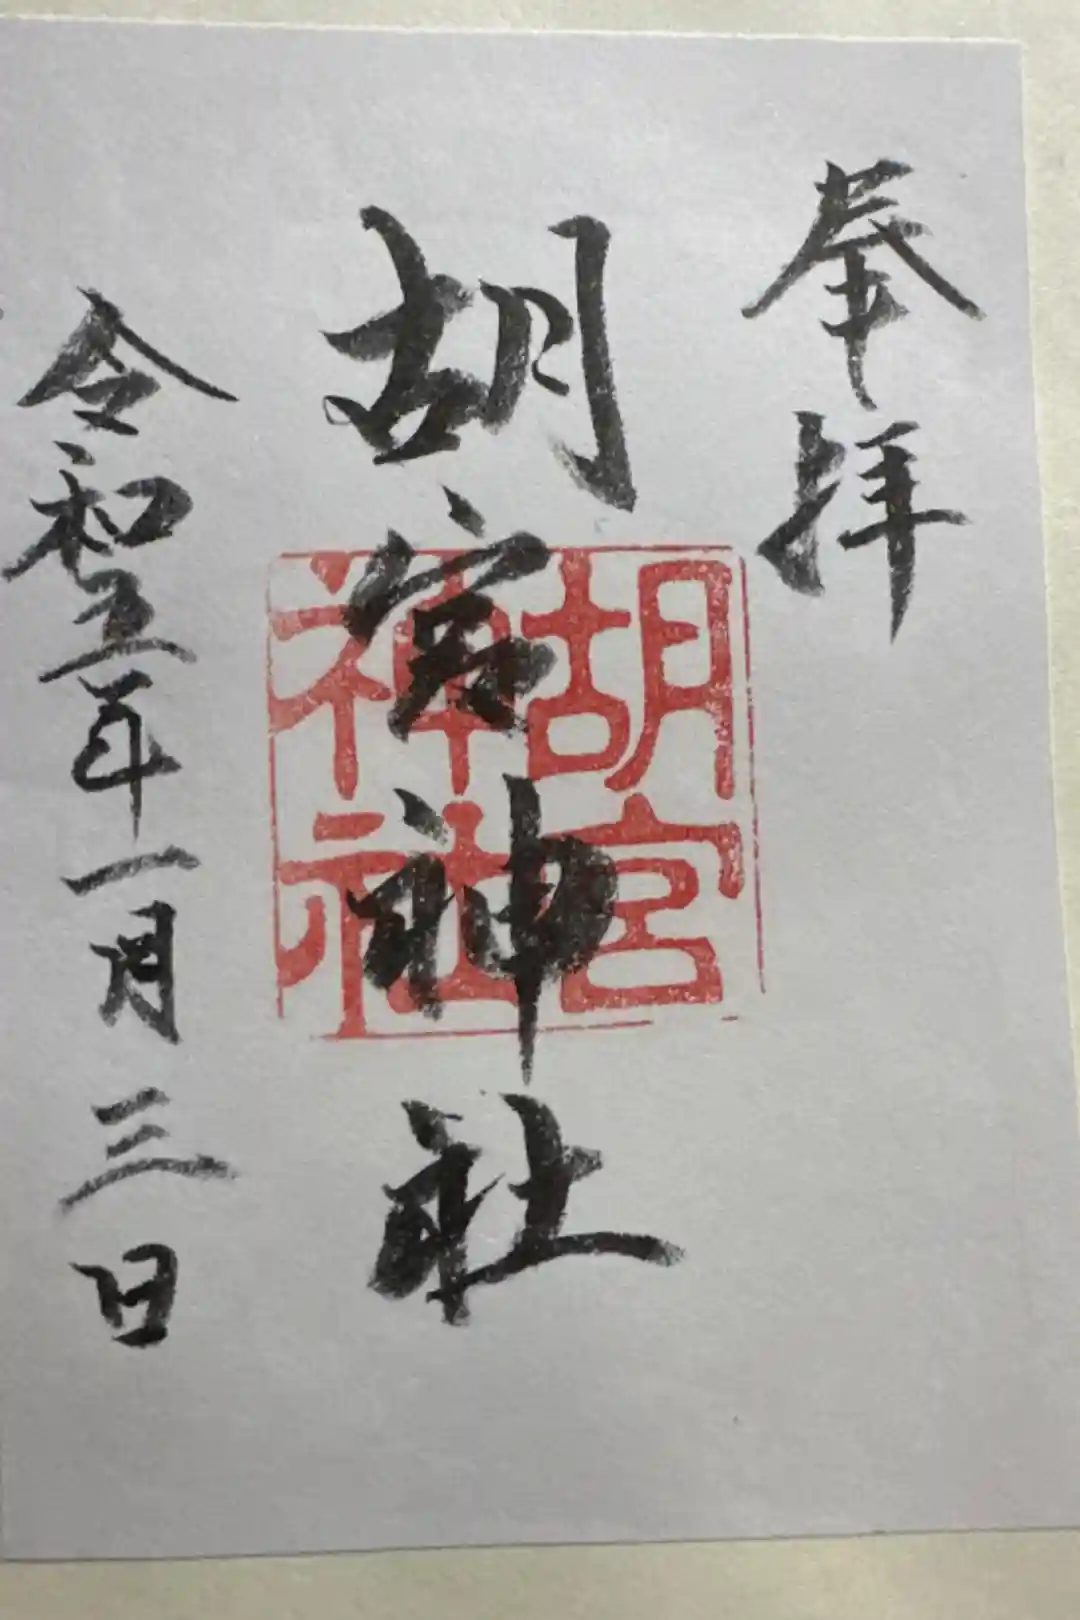 奉拝
胡宮神社
胡宮
神社
令和五年一月三日